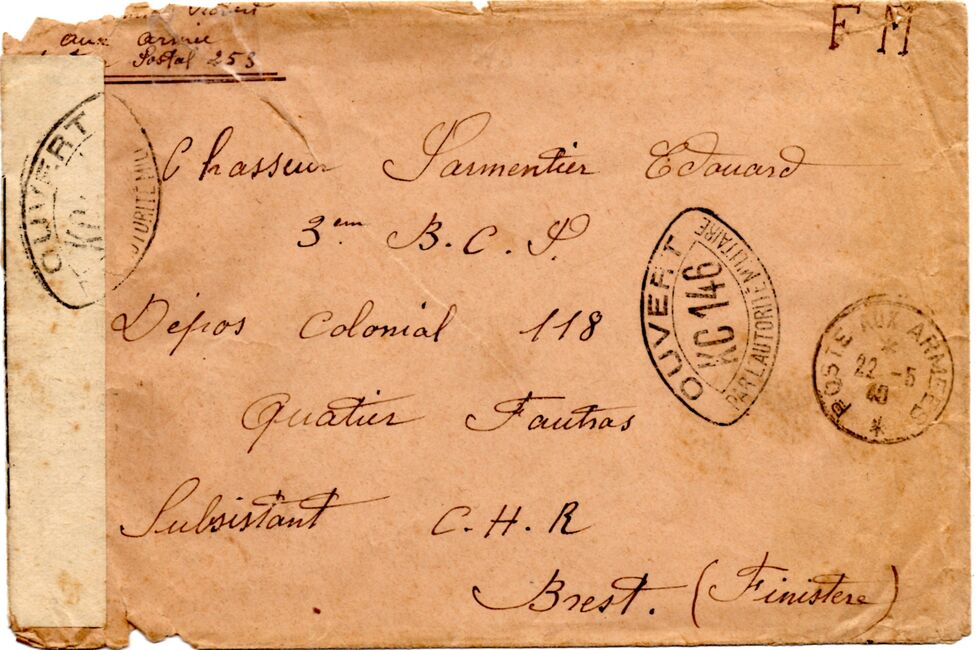 aux armée
Postal 253
F M
Chasseur Sarmentier Edouard
3em B.C.P.
Dépos Colonial 118
Quatier Fautras
Subsistant C.H.R
Brest. (Finistere)
OUVERT
OUVERT
KC 146
PAR L'AUTORITE MILITAIRE
POSTE AUX ARMEES
22 -5
40